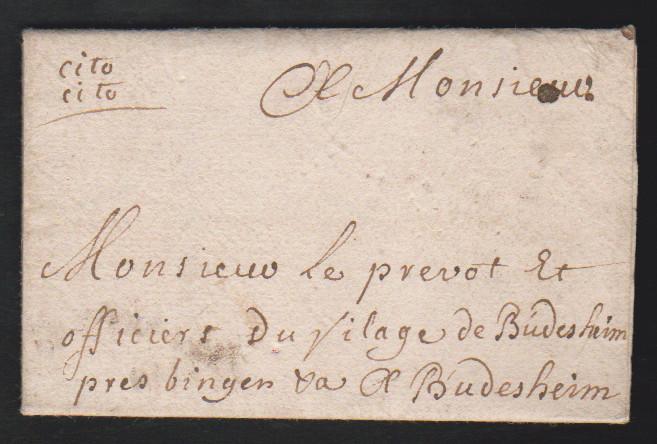 cito
cito
A Monsieur
Monsieur le prevot Et
officiers Du vilage de Büdesheim
pres bingen va A Büdesheim